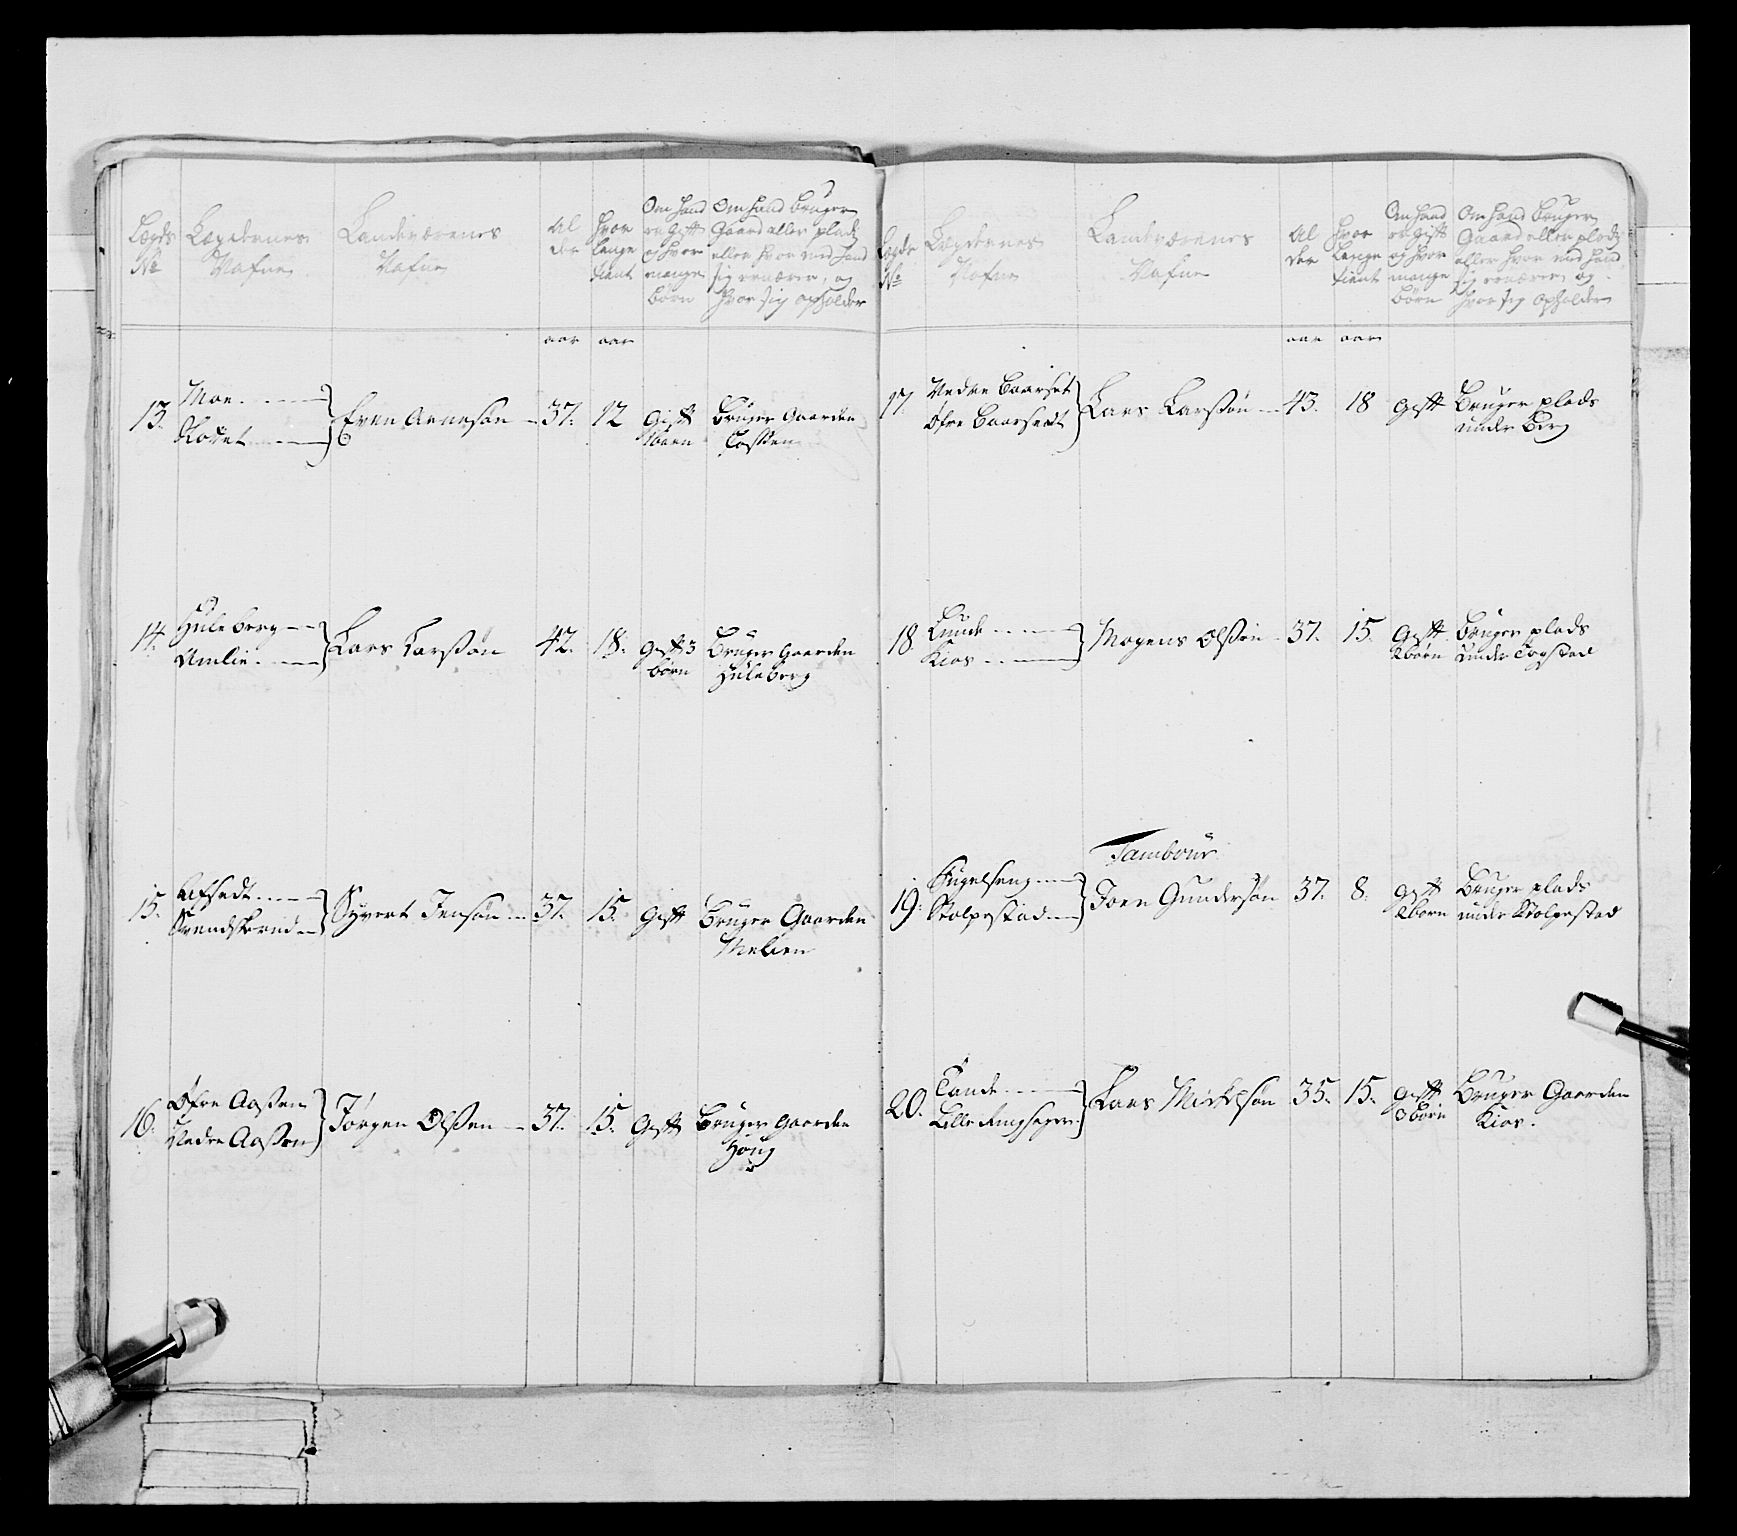 Lægds
No
Lægdernes
Nafne
Landeværenes
Nafne
Al
der
hvor
længe
tient
Om hand
er Gift
og hvor
mange
börn
Om hand bruger
Gaard eller plads
eller hvor med hand
sig ernærer, og
hvor sig opholder
aar aar
13.
Moe
Even Arneson 37. 12 Gift
1 barn
Bruger Gaarden
14.
Huleberg
Amlie
Lars Larssøn 42. 18. Gift 3
börn
Bruger Gaarden
Huleberg
15.
Svendsbrud
Syvert Jensøn 37. 15. Gift
Bruger Gaarden
Melien
16.
Öfre Aassen
Nedre Aassen
Jörgen Olssen 37. 15. Gift
Bruger Gaarden
Houg
Lægds
No
Lægdernes
Nafne
Landeværenes
Nafne
Al
der
hvor
længe
tient
Om hand
er Gift
og hvor
mange
börn
Om hand bruger
Gaard eller plads
eller hvor med hand
sig ernærer og
hvor sig opholder
aar aar
17.
Nedre Baarset
Öfre Baarsedt
Lars Larssön 43. 18 Gift
Bruger plads
under Berg
18.
Lunde
Kios
Mogens Olssön 37. 15. Gift
2 børn
bruger plads
under
Tambour
19.
Fugelseng
Stolpestad
Joen Gundersön 37. 8. Gift
2 børn
bruger plads
under Stolpestad
20.
Tande
Lille
Lars Mickelsøn 35. 15. Gift
3 børn
Bruger Gaarden
Kios.